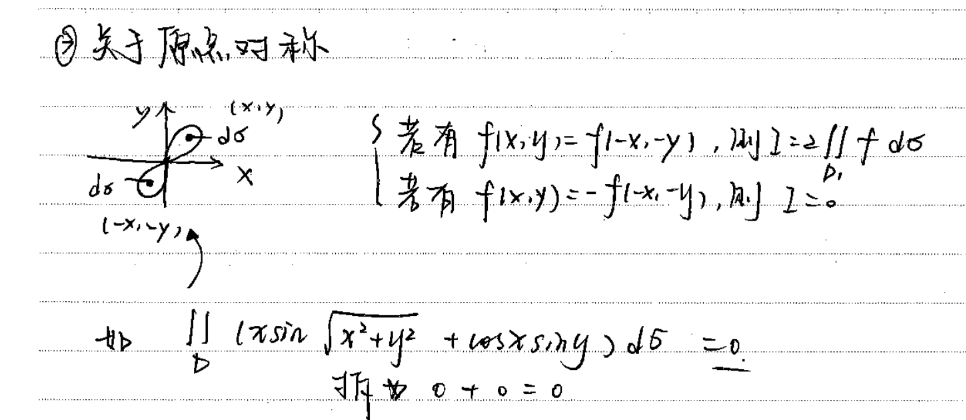 ③ 关于原点对称
y (x,y)
dσ
x
dσ
(-x,-y)
{ 若有 f(x,y)=f(-x,-y), 则 I=2∬_{D₁} f dσ
若有 f(x,y)=-f(-x,-y), 则 I=0
如 ∬_D (x sin √(x²+y²) + cosx siny) dσ = 0.
拆 0 + 0 = 0